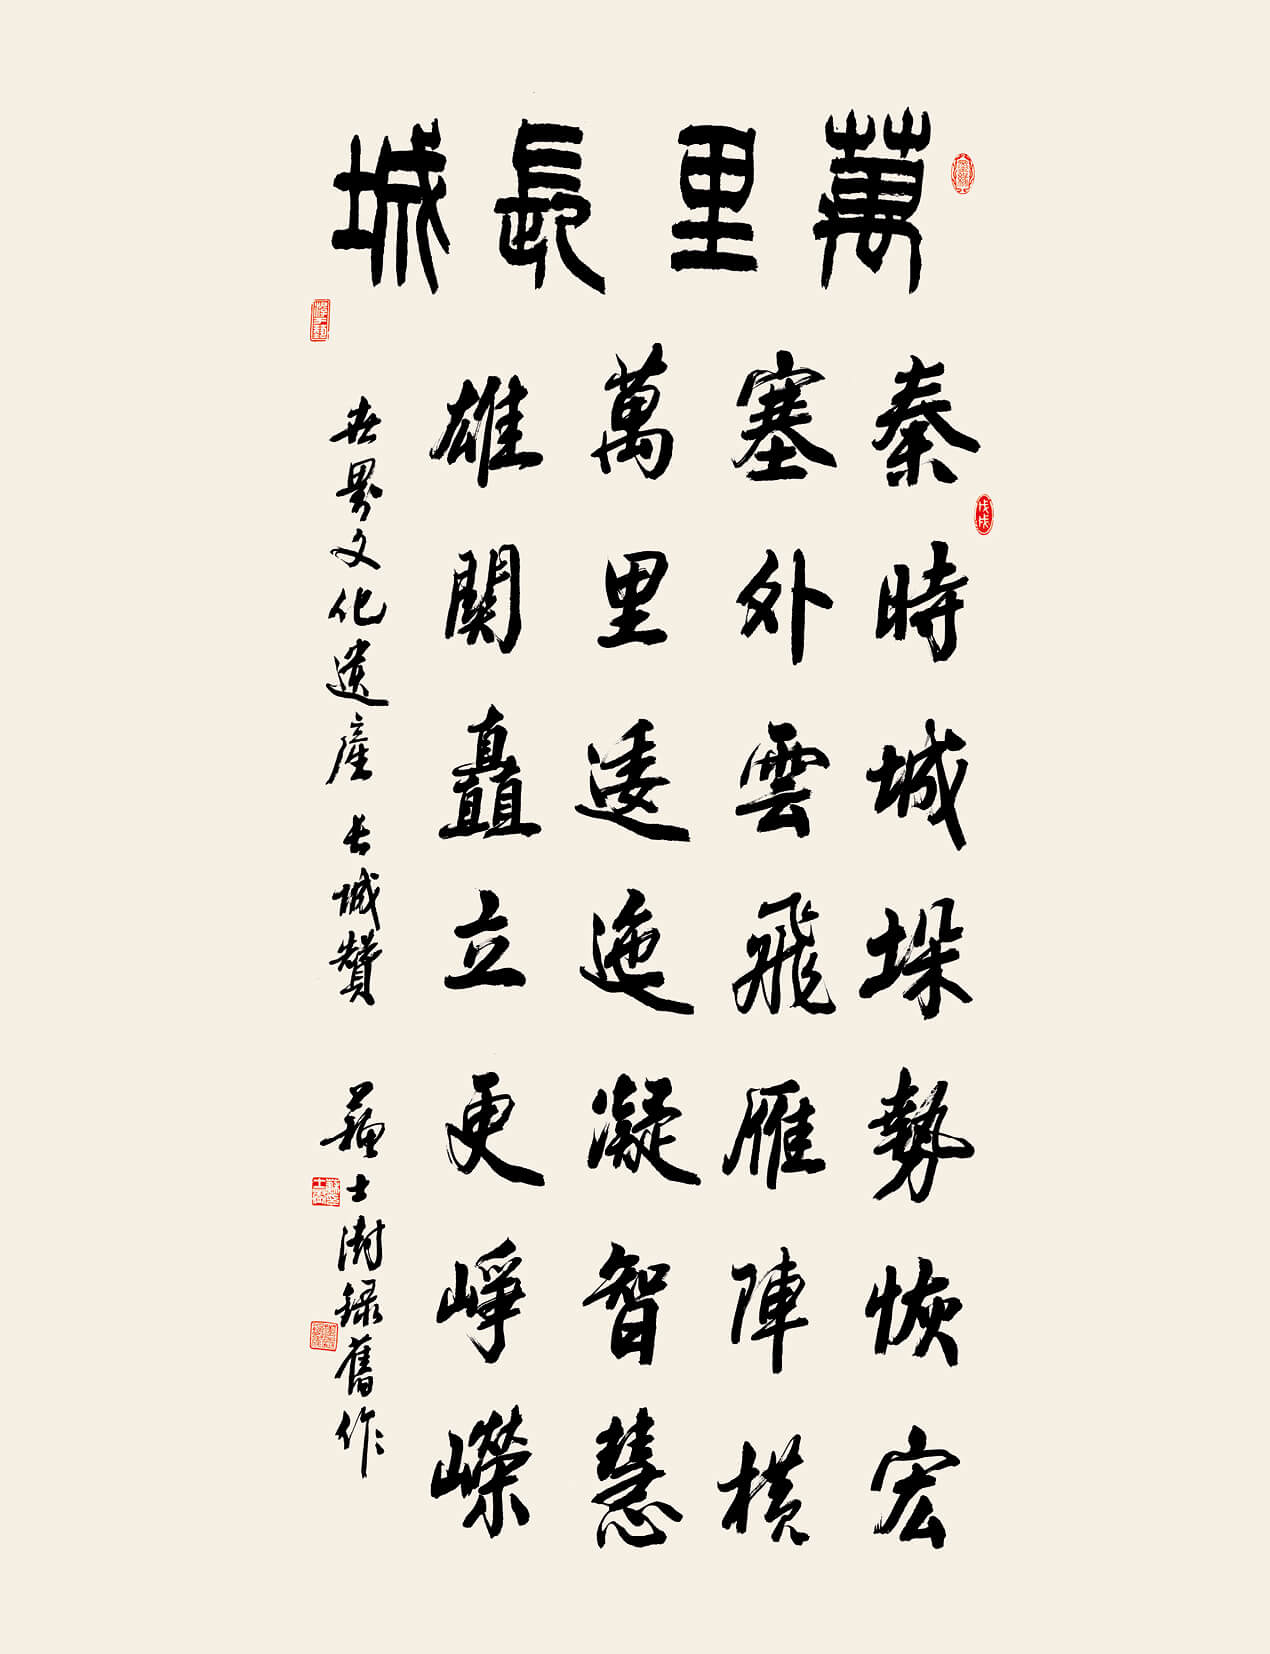 萬里長城
秦時城垛勢恢宏
塞外雲飛雁陣橫
萬里逶迤凝智慧
雄關矗立更崢嶸
世界文化遺產 长城贊 蘇士澍錄舊作
戊戌